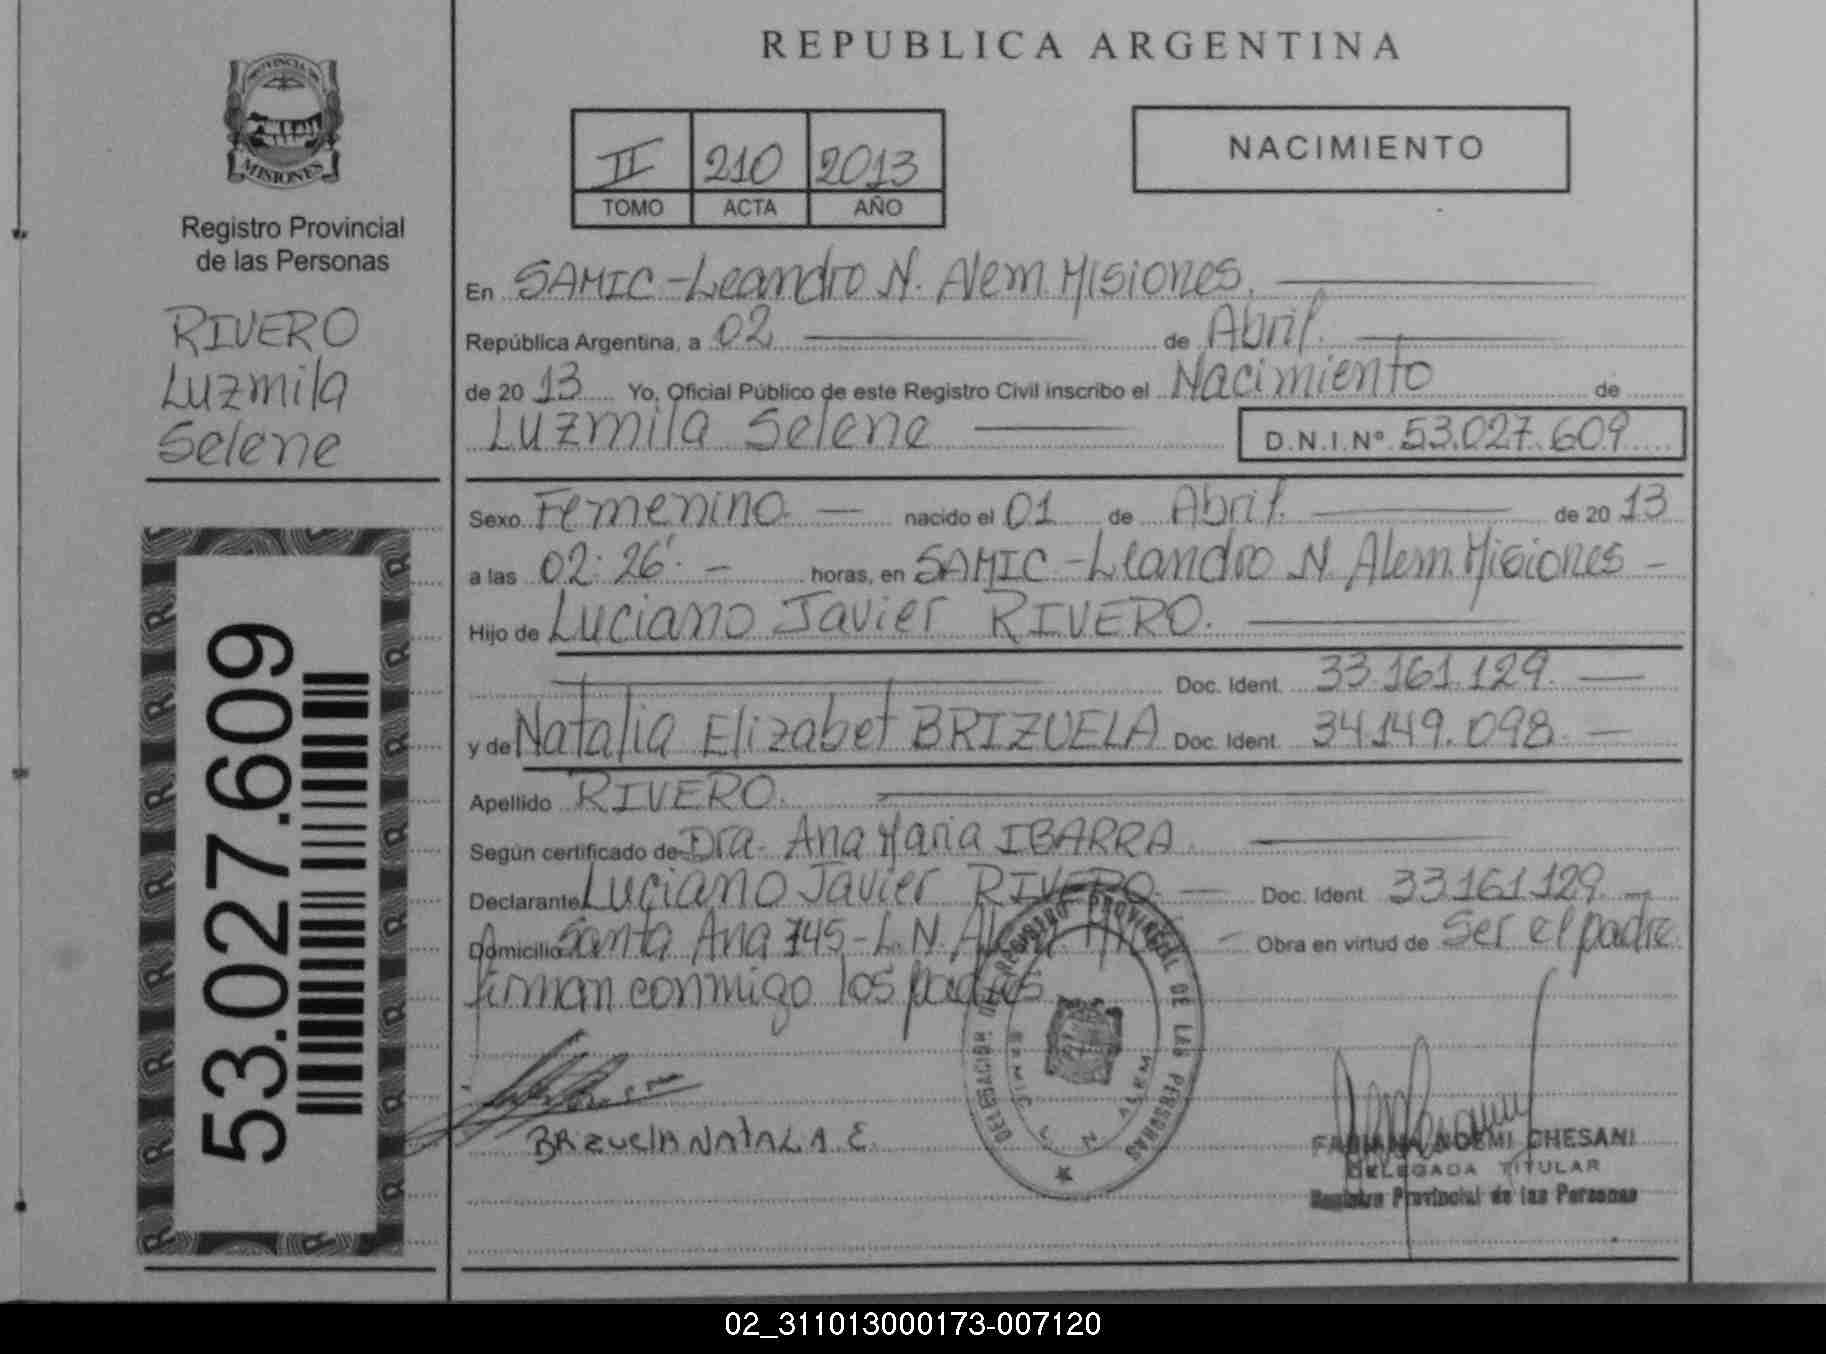 REPUBLICA ARGENTINA
PROVINCIA DE
MISIONES
Registro Provincial
de las Personas
RIVERO
Luzmila
Selene
53.027.609
II 210 2013
TOMO ACTA AÑO
NACIMIENTO
En SAMIC-Leandro N. Alem. Misiones.
República Argentina, a 02 de Abril.
de 2013 Yo, Oficial Público de este Registro Civil inscribo el Nacimiento de
Luzmila Selene D.N.I.Nº 53.027.609
Sexo Femenino. nacido el 01 de Abril. de 2013
a las 02:26'. horas, en SAMIC-Leandro N. Alem. Misiones
Hijo de Luciano Javier RIVERO.
Doc. Ident. 33.161.129.
y de Natalia Elizabet BRIZUELA Doc. Ident. 34.149.098.
Apellido RIVERO.
Según certificado de Dra. Ana Maria IBARRA
Declarante Luciano Javier RIVERO. Doc. Ident. 33.161.129.
Domicilio Santa Ana 745-L.N. Alem. Obra en virtud de Ser el padre.
firman conmigo los padres
DELEGACION DEL REGISTRO PROVINCIAL DE LAS PERSONAS
SAMIC L N ALEM
BRIZUELA NATALIA E.
FABIANA NOEMI CHESANI
DELEGADA TITULAR
Registro Provincial de las Personas
02_311013000173-007120